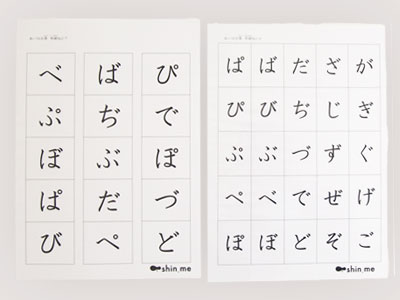 べ ば ぴ
ぷ ぢ で
ぼ ぶ ぽ
ぱ だ づ
び ぺ ど
shin_me
ぱ ば だ ざ が
ぴ び ぢ じ ぎ
ぷ ぶ づ ず ぐ
ぺ べ で ぜ げ
ぽ ぼ ど ぞ ご
shin_me